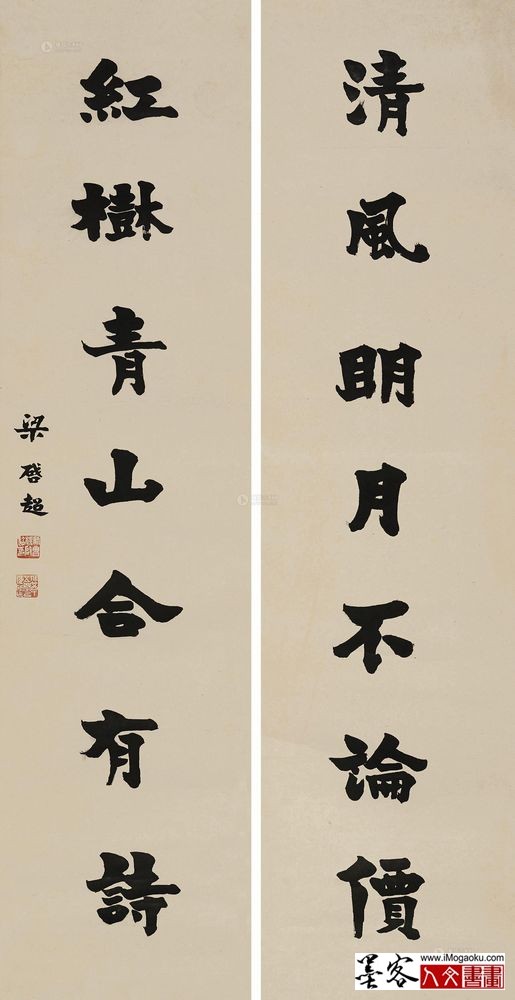 清風明月不論價
紅樹青山合有詩
梁啓超
墨客
人文書畫
www.iMogaoku.com